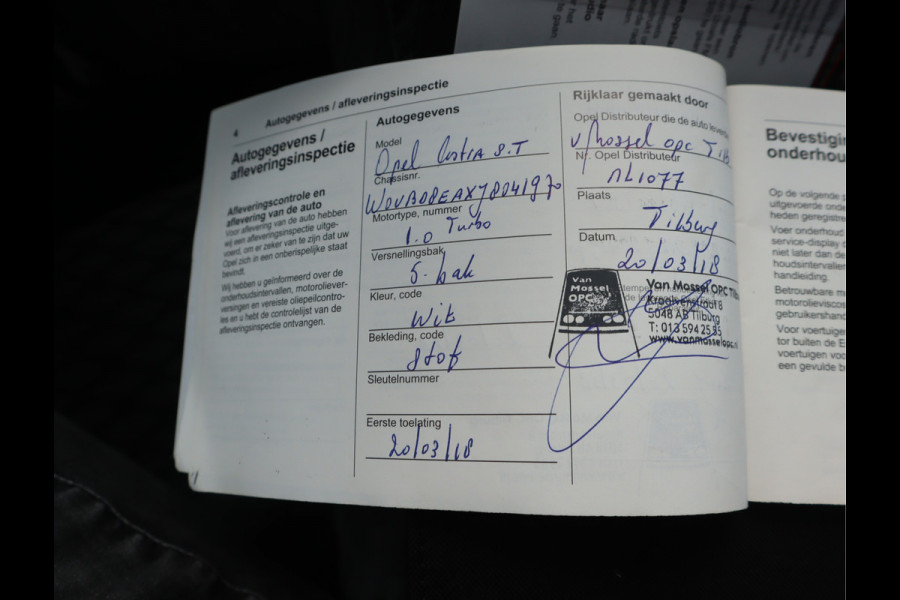 4 Autogegevens / afleveringsinspectie
Autogegevens /
afleveringsinspectie
Afleveringscontrole en
aflevering van de auto
Voor aflevering van de auto hebben
wij een afleveringsinspectie uitge-
voerd, om er zeker van te zijn dat uw
Opel zich in een onberispelijke staat
bevindt.
Wij hebben u geïnformeerd over de
onderhoudsintervallen, motoroliever-
versingen en vereiste oliepeilcontro-
les en u hebt de controlelijst van de
afleveringsinspectie ontvangen.
Autogegevens
Model
Opel S.T
Chassisnr.
Motortype, nummer
1.0 Turbo
Versnellingsbak
5. bak
Kleur, code
Wit
Bekleding, code
Stof
Sleutelnummer
Eerste toelating
20/03/18
Rijklaar gemaakt door
Opel Distributeur die de auto
v/Mossel OPC
Nr. Opel Distributeur
NL1077
Plaats
Tilburg
Datum
20/03/18
Van
Mossel
OPC
Van Mossel OPC
Kraaivenstraat 6
5048 AB Tilburg
T: 013 594 25 35
www.vanmosselopc.
onderhou
Op de volgende
uitgevoerde
heden
Voer onderhoud
service-display
niet later dan de
houdsintervallen
handleiding.
Betrouwbare
gebruikershand
Voor voertuigen
tor buiten de
voertuigen
een gevulde